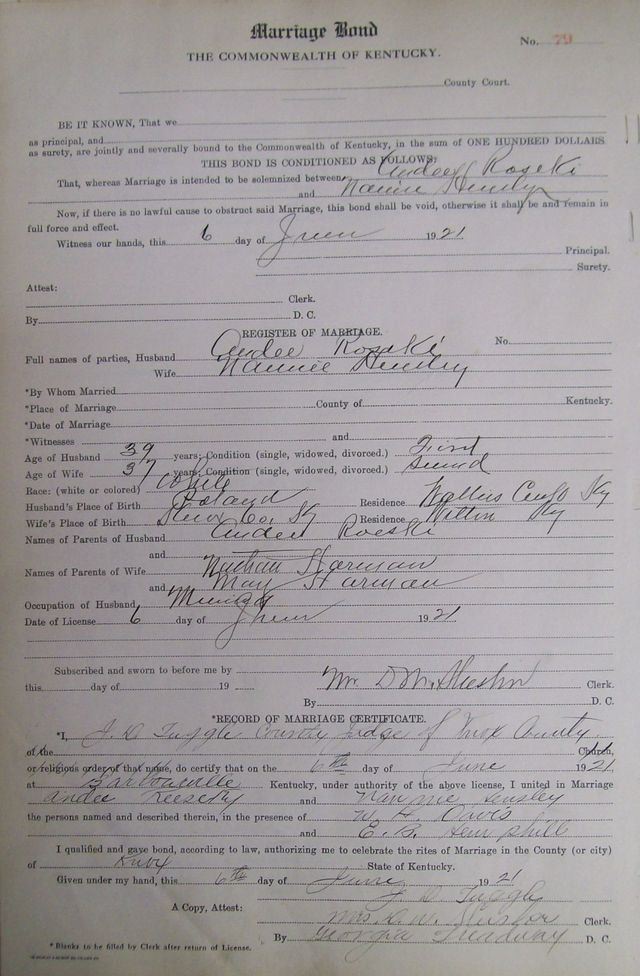 Marriage Bond
No. 79
THE COMMONWEALTH OF KENTUCKY.
County Court.
BE IT KNOWN, That we
as principal, and
as surety, are jointly and severally bound to the Commonwealth of Kentucky, in the sum of ONE HUNDRED DOLLARS
THIS BOND IS CONDITIONED AS FOLLOWS:
That, whereas Marriage is intended to be solemnized between Andee Roseki
and Nannie
Now, if there is no lawful cause to obstruct said Marriage, this bond shall be void, otherwise it shall be and remain in
full force and effect.
Witness our hands, this 6 day of 1921
Principal.
Surety.
Attest:
Clerk.
By D. C.
REGISTER OF MARRIAGE.
No.
Full names of parties, Husband Andee Roseki
Wife Nannie
*By Whom Married
*Place of Marriage County of Kentucky.
*Date of Marriage
*Witnesses and
Age of Husband 39 years; Condition (single, widowed, divorced.) First
Age of Wife 37 years; Condition (single, widowed, divorced.)
Race: (white or colored) White
Husband's Place of Birth Poland Residence Ky
Wife's Place of Birth Knox Co. Ky Residence Wilton Ky
Names of Parents of Husband Andee Roeski
and
Names of Parents of Wife Nathan Starman
and May Starman
Occupation of Husband
Date of License 6 day of 1921
Subscribed and sworn to before me by
this day of 19 Clerk.
By D. C.
*RECORD OF MARRIAGE CERTIFICATE.
*I, J. D. Tuggle County Judge of Knox County
of the Church,
or religious order of that name, do certify that on the 6th day of June 1921
at Barbourville Kentucky, under authority of the above license, I united in Marriage
Andee and Nannie Hensley
the persons named and described therein, in the presence of W. H. Davis
and E. B. Hemphill
I qualified and gave bond, according to law, authorizing me to celebrate the rites of Marriage in the County (or city)
of Knox State of Kentucky.
Given under my hand, this 6th day of June 1921
J. D. Tuggle
A Copy, Attest: Mrs. Clerk.
By Georgia Treadway D. C.
* Blanks to be filled by Clerk after return of License.